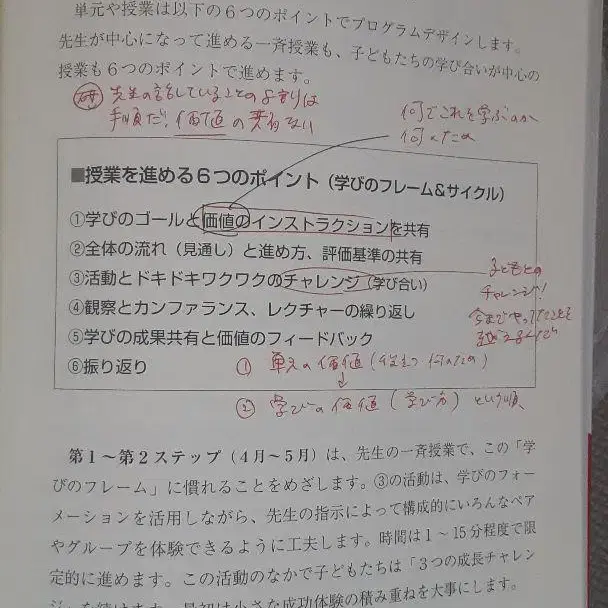 単元や授業は以下の6つのポイントでプログラムデザインします。
先生が中心になって進める一斉授業も、子どもたちの学び合いが中心の
授業も6つのポイントで進めます。
先生の話していることの8割りは
手順だ、価値の共有ない
何でこれを学ぶのか
何のため
■授業を進める6つのポイント（学びのフレーム&サイクル）
①学びのゴールと価値のインストラクションを共有
②全体の流れ（見通し）と進め方、評価基準の共有
③活動とドキドキワクワクのチャレンジ（学び合い）
子どもの
チャレンジ!
今までやってたことを
④観察とカンファランス、レクチャーの繰り返し
⑤学びの成果共有と価値のフィードバック
⑥振り返り
① 単元の価値（何のため）
↓
② 学びの価値（学び方）という順
第1～第2ステップ（4月～5月）は、先生の一斉授業で、この「学
びのフレーム」に慣れることをめざします。③の活動は、学びのフォー
メーションを活用しながら、先生の指示によって構成的にいろんなペア
やグループを体験できるように工夫します。時間は1～15分程度で限
定的に進めます。この活動のなかで子どもたちは「3つの成長チャレン
ジ」を続けます。最初は小さな成功体験の積み重ねを大事にします。